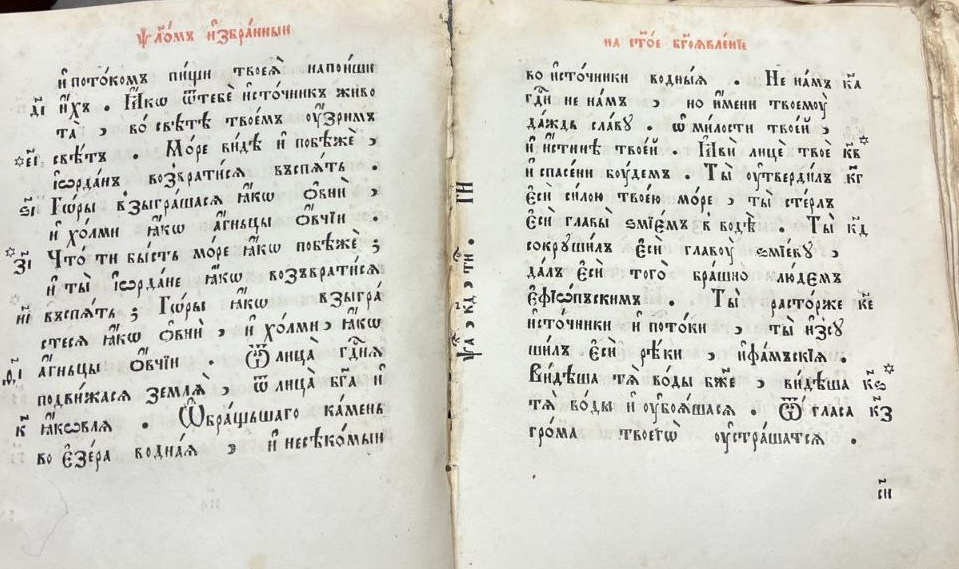 ѱало́мъ и҆збра́нныи
и҆ потокомъ пи́щи твоеѧ̀ напои́ши
д҃і и҆́хъ . Ꙗ҆́кѡ ѿ тебѐ и҆сто́чникъ живо
та̀ , во́ свѣтѣ твое́мъ оу҆́зримъ
є҃і свѣтъ . Мо́ре ви́дѣ и҆ побѣжѐ ,
і҆ѡрда́нъ возврати́сѧ въспѧ́ть .
ѕ҃і Го́ры взыгра́шасѧ ꙗ҆́кѡ ѻ҆вни̏ ,
и҆ хо́лми ꙗ҆́кѡ а҆́гньцы ѻ҆́вчїи .
з҃і Что́ ти бы́сть мо́ре ꙗ҆́кѡ побѣжѐ ;
и҆ ты̏ і҆ѡрда́не ꙗ҆́кѡ возъврати́сѧ
и҃і въспѧ́ть ; Го́ры ꙗ҆́кѡ взыгра́
стесѧ ꙗ҆́кѡ ѻ҆вни̏ , и҆ хо́лми , ꙗ҆́кѡ
ѳ҃і а҆́гньцы ѻ҆́вчїи . Ѿ лица̀ гд҇нѧ
подви́жасѧ землѧ̀ , ѿ лица̀ бг҃а и҆
к҃ ꙗ҆́кѡвлѧ . Ѡ҆бра́щьшаго ка́мень
во є҆зе́ра во́днаѧ , и҆ несѣко́мыи
ѱа҃ , к҃д , ти҃ . г҃и
на ст҃о́е бг҃оѧвле́нїе
во и҆сто́чники во́дныѧ . Не на́мъ к҃а
гд҇и не на́мъ , но и҆́мени твоемоу̀
да́ждь сла́вꙋ . ѡ҆ ми́лости твое́й ,
и҆ и҆́стинѣ твое́й . Ꙗ҆ви̏ лицѐ твоѐ к҃в
и҆ спасе́ни боу́демъ . Ты̏ оу҆тверди́лъ к҃г
є҆сѝ си́лою твое́ю мо́ре , ты̏ сте́рлъ
є҆сѝ главы̀ ѕмїе́мъ в водѣ̀ . Ты̏ к҃д
сокруши́лъ є҆сѝ главоу̀ ѕмїе́вꙋ ,
да́лъ є҆сѝ того̀ бра́шно лю́демъ
є҆фїѡ́пьскимъ . Ты̏ расто́рже к҃е
и҆сто́чники и҆ пото́ки , ты̏ и҆зсꙋ
ши́лъ є҆сѝ рѣ́ки , и҆фа́мьскїѧ .
Ви́дѣша тѧ̀ во́ды бж҃е , ви́дѣша к҃ѕ
тѧ̀ во́ды и҆ оу҆боѧ́шасѧ . Ѿ гла́са к҃з
гро́ма твоегѡ̀ оу҆стра́шатсѧ .
с҃н